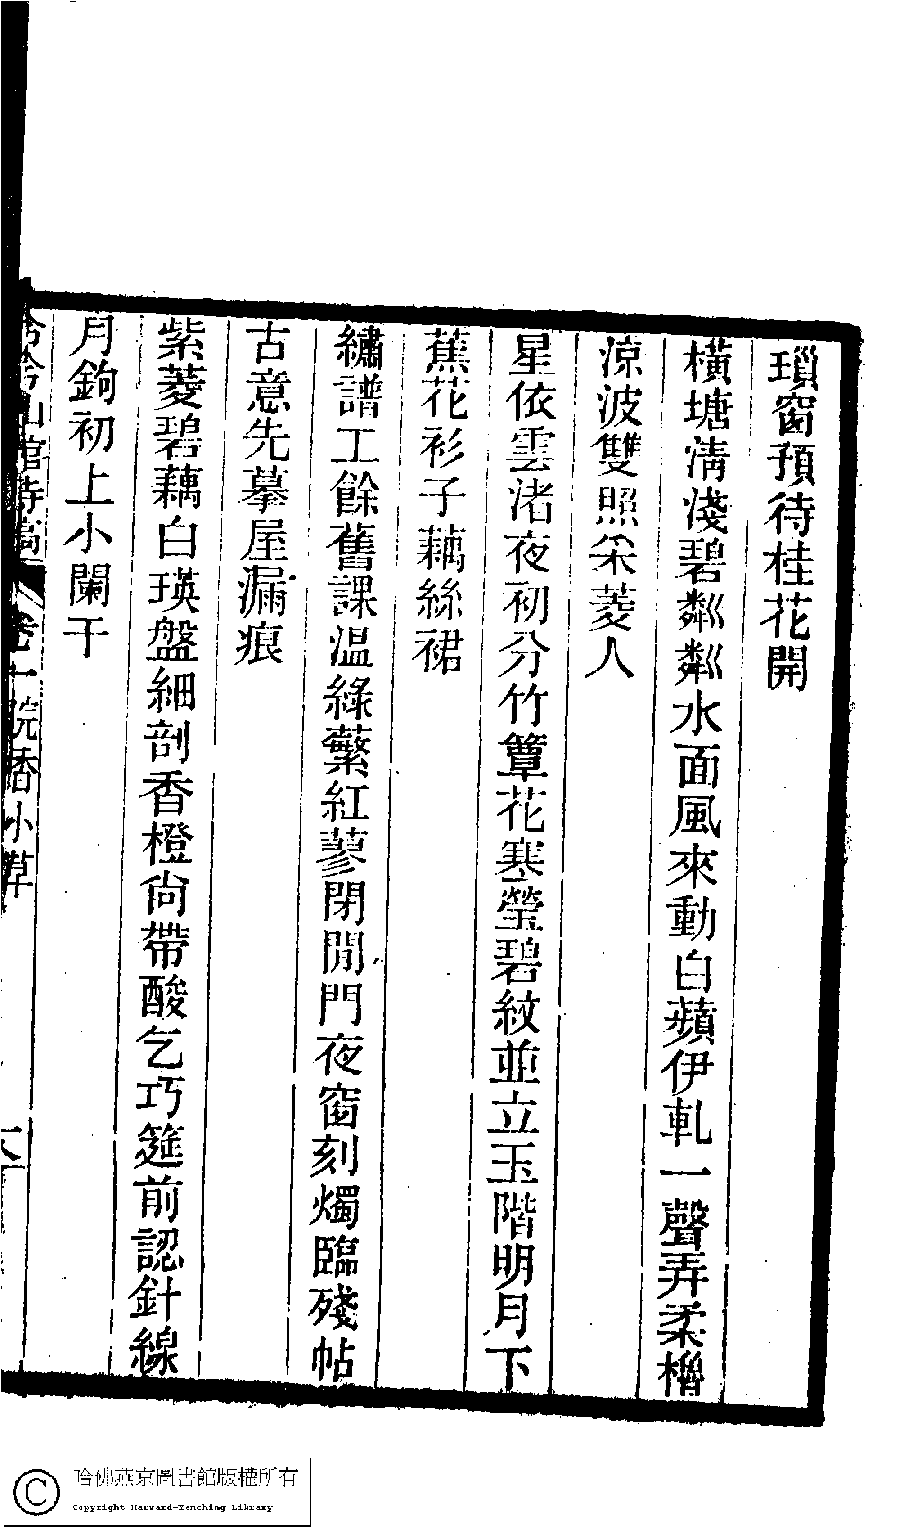 瑣窗預待桂花開
橫塘淸淺碧粼粼水面風來動白蘋伊軋一聲弄柔櫓
涼波雙照采菱人
星依雲渚夜初分竹簟花寒瑩碧紋並立玉階明月下
蕉花衫子藕絲裙
繡譜工餘舊課溫綠蘩紅蓼閉閒門夜窗刻燭臨殘帖
古意先摹屋漏痕
紫菱碧藕白瑛盤細剖香橙尙帶酸乞巧筵前認針線
月鉤初上小闌干
山館詩稿 卷一院香小草
哈佛燕京圖書館版權所有
Copyright Harvard-Yenching Library